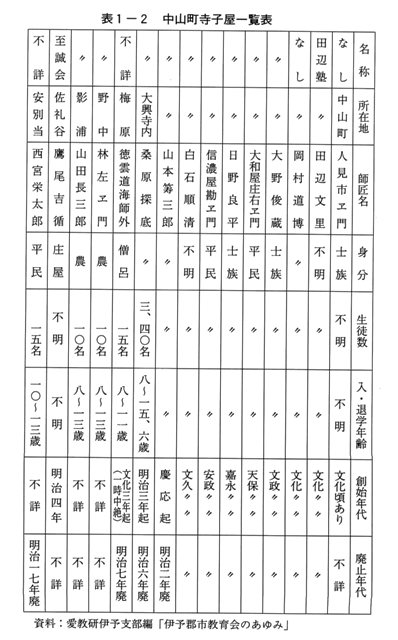 表1－2　中山町寺子屋一覧表
名称 所在地 師匠名 身分 生徒数 入・退学年齢 創始年代 廃止年代
なし 中山町 人見市ヱ門 士族 不明 不明 文化頃あり 不詳
田辺塾 〃 田辺文里 不明 〃 〃 文化〃〃 〃
なし 〃 岡村道博 〃 〃 〃 文化〃〃 〃
〃 〃 大野俊蔵 士族 〃 〃 文政〃〃 〃
〃 〃 大和屋庄右ヱ門 平民 〃 〃 天保〃〃 〃
〃 〃 日野良平 士族 〃 〃 嘉永〃〃 〃
〃 〃 信濃屋勘ヱ門 平民 〃 〃 安政〃〃 〃
〃 〃 白石順清 不明 〃 〃 文久〃〃 〃
〃 〃 山本籌三郎 〃 〃 〃 慶応起 明治二年廃
〃 大興寺内 桑原探底 〃 三、四〇名 八～一五、六歳 明治三年起 明治六年廃
不詳 梅原 徳雲道海師外 僧呂 一五名 八～一一歳 文化三年起(一時中絶) 明治七年廃
〃 野中 林左ヱ門 農 一〇名 八～一三歳 不詳 不詳
〃 影浦 山田長三郎 農 一〇名 八～一三歳 不詳 不詳
至誠会 佐礼谷 鷹尾吉循 庄屋 不明 不明 明治四年 不詳
不詳 安別当 西宮栄太郎 平民 一五名 一〇～一三歳 不詳 明治一七年廃
資料：愛教研伊予支部編「伊予郡市教育会のあゆみ」